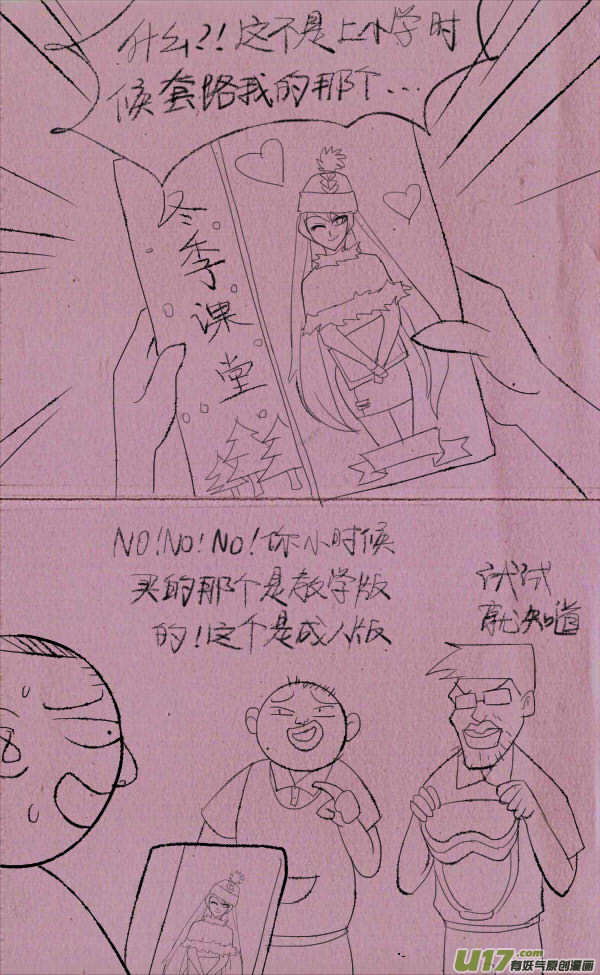 什么?!这不是上小学时
候套路我的那个...
冬季课堂
NO!NO!NO!你小时候
买的那个是教学版
的!这个是成人版
试试
就知道
U17.com
有妖气原创漫画